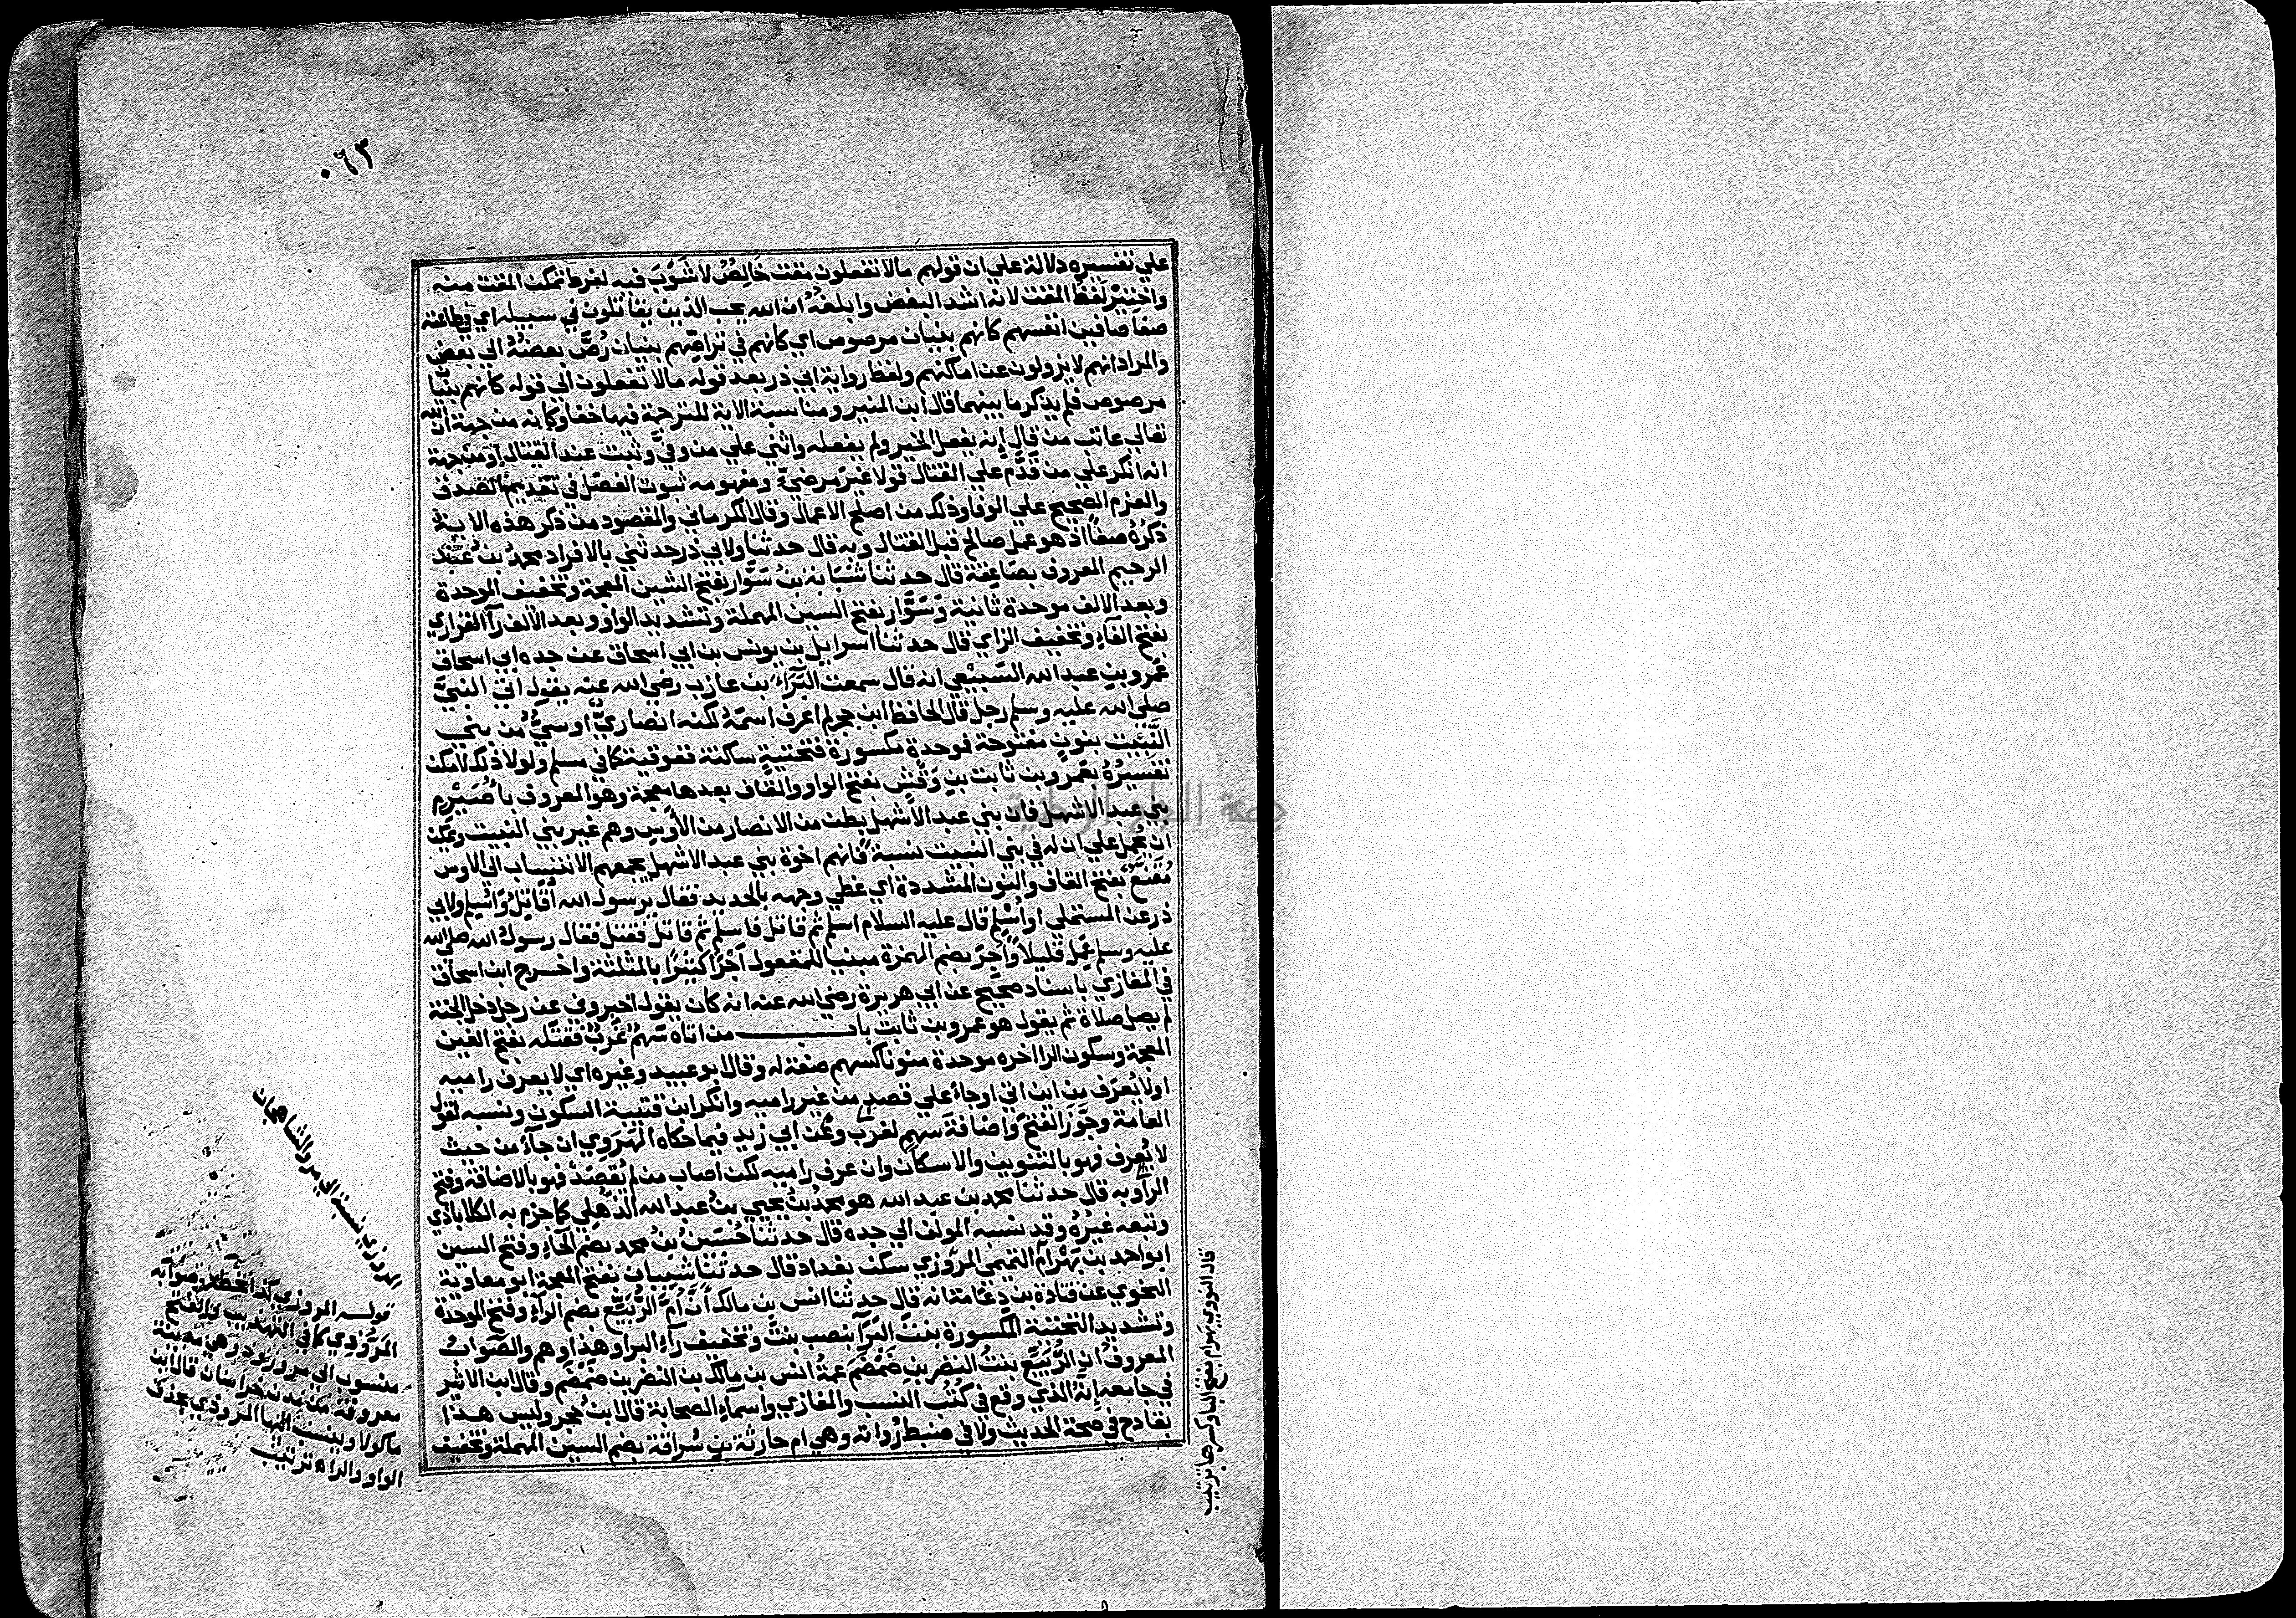 ٠٦٣
علي تفسيره دلالة علي ان قولهم مالا تفعلون مقت خَالِصٌ لا شَوْبَ فيه لفرط تمكن المقت منه
واختِيْرَ لفظ المقت لانه اشد البغض وابلغُهُ ان الله يحب الذين يقاتلون في سبيله اي في طاعته
صفا صافين انفسهم كانهم بنيان مرصوص اي كانهم في تراصِّهم بنيان رُصَّ بعضُهُ الي بعض
والمراد انهم لا يزولون عن اماكنهم ولفظ رواية ابي ذر بعد قوله مالا تفعلون الي قوله كانهم بنيان
مرصوص فلم يذكر ما بينهما قال ابن المنير ومناسبة الاية للترجمة فيها خفا وكانه من جهة ان الله
تعالي عاتب من قال انه يفعل الخير ولم يفعله واثني علي من وفيَّ وثبت عند القتال او من جهة
انه انكر علي من قَدَّم علي القتال قولا غيرَ مرضيٍّ ومفهومه ثبوت الفضل في تقديم الصدق
والعزم الصحيح علي الوفا وذلك من اصلح الاعمال وقال الكرماني والمقصود من ذكر هذه الاية
ذكرُهُ صفًّا اذ هو عمل صالح قبل القتال وبه قال حدثنا ولابي ذر حدثني بالافراد محمدُ بنُ عَبْد
الرحيم المعروف بصَاعِقَة قال حدثنا شَبَابة بنُ سَوَّار بفتح الشين المعجمة وتخفيف الموحدة
وبعد الالف موحدة ثانية وَسَوَّار بفتح السين المهملة وتشديد الواو وبعد الالف رآ الفزاري
بفتح الفآءِ وتخفيف الزاي قال حدثنا اسرايل بن يونس بن ابي اسحاق عن جده ابي اسحاق
عَمرو بنِ عبد الله السَّبِيْعي انه قال سمعت البَرَآءَ بن عازب رضي الله عنه يقول اتي النبيَّ
صلي الله عليه وسلم رجل قال الحافظ ابن حجر لم اعرف اسمَهُ لكنه انصاريٌّ اوسيٌّ من بني
النَّبِيْت بنونٍ مفتوحة فموحدةٍ مكسورة فتحتيةٍ ساكنة ففوقيةٍ كما في مسلم ولولا ذلك لامكن
تفسيرُهُ بعَمرو بن ثابت بنِ وَقْشٍ بفتح الواو والقاف بعدها معجمة وهو المعروف باُصَيْرِم
بني عبد الاشهل فان بني عبد الاشهل بطن من الانصار من الأَوْسِ وهم غير بني النبيت ويمكن
ان يُحمل علي ان له في بني النبيت نسبةً فانهم اخوة بني عبد الاشهل يجمعهم الانتساب الي الاوس
مُقَنَّعٌ بفتح القاف والنون المشددة اي غطي وجهه بالحديد فقال يرسول الله أُقَاتِلُ وَاُسْلِم ولابي
ذر عن المستملي او اُسْلِم قال عليه السلام اسلم ثم قاتل فاسلم ثم قاتل فقتل فقال رسول الله صلي الله
عليه وسلم عَمِلَ قليلاً وَاُجِرَ بضم الهمزة مبنيا للمفعول اَجْرًا كَثِيْرًا بالمثلثة واخرج ابن اسحاق
في المغازي باسناد صحيح عن ابي هريرة رضي الله عنه انه كان يقول اخبروني عن رجل دخل الجنة
لم يصل صلاة ثم يقول هو عمرو بن ثابت باب من اتاه سَهْمٌ غَرْبٌ فقتَلَه بفتح الغين
المعجمة وسكون الرا اخره موحدة منونا كسهم صفة له وقال ابو عبيد وغيره اي لا يعرف راميه
او لا يُعرَف من اين اتي او جاء علي قصدٍ من غير راميه وانكر ابن قتيبة السكون ونسبه لقول
العامة وجَوَّزَ الفتحَ واضافةَ سهمٍ لغربٍ وعن ابي زيدٍ فيما حكاه الهَرَوِي ان جآءَ من حيث
لا يُعرف فهو بالتنوين والاسكان وان عرف راميه لكن اصاب من لم يُقصَدْ فهو بالاضافة وفتح
الرآ وبه قال حدثنا محمد بن عبد الله هو محمدُ بنُ يحيي بنُ عبد الله الذُّهلي كما جزم به الكلاباذي
وتبعه غيرُهُ وقد نسبه المولف الي جده قال حدثنا حُسَيْنُ بنُ محمد بضم الحاءِ وفتح السين
ابو احمد بن بَهْرام التميمي المَرْوَزي سكن بغداد قال حدثنا شَيْبان بفتح المعجمة ابو معاوية
النحوي عن قتادة بن دِعَامة انه قال حدثنا انس بن مالك أَنَّ اُمَّ الرُّبَيِّع بضم الرآءِ وفتح الموحدة
وتشديد التحتية المكسورة بنت البَرَآ بنصب بنتَ وتخفيف رآءِ البرا وهذا وهم والصَّوابُ
المعروفُ ان الرُّبَيِّع بنتُ النضر بنِ ضَمْضَمَ عمةُ انس بن مالك بن النضر بن ضمضم وقال ابن الاثير
في جامعه إِنَّهُ الذي وقع في كُتُب النسب والمغازي واسمآءِ الصحابة قال ابن حجر وليس هذا
بقادح في صحة الحديث ولا في ضبط رُواته وهي ام حارثة بنِ سُراقة بضم السين المهملة وتخفيف
المروزي نسبة الي مرو الشاهجان
قوله المروزي كذا بخطه وصوابه
المَرُّوْذِي كما في التهذيب بالفتح
منسوب الي مروروذ وهي مدينة
معروفة من مدن خراسان قال ابن
ماكولا وينسب اليها المروذي بحذف
الواو والراء ترتيب
قال النووي بهرام بفتح البا وكسرها ترتيب
جمعة الماجد